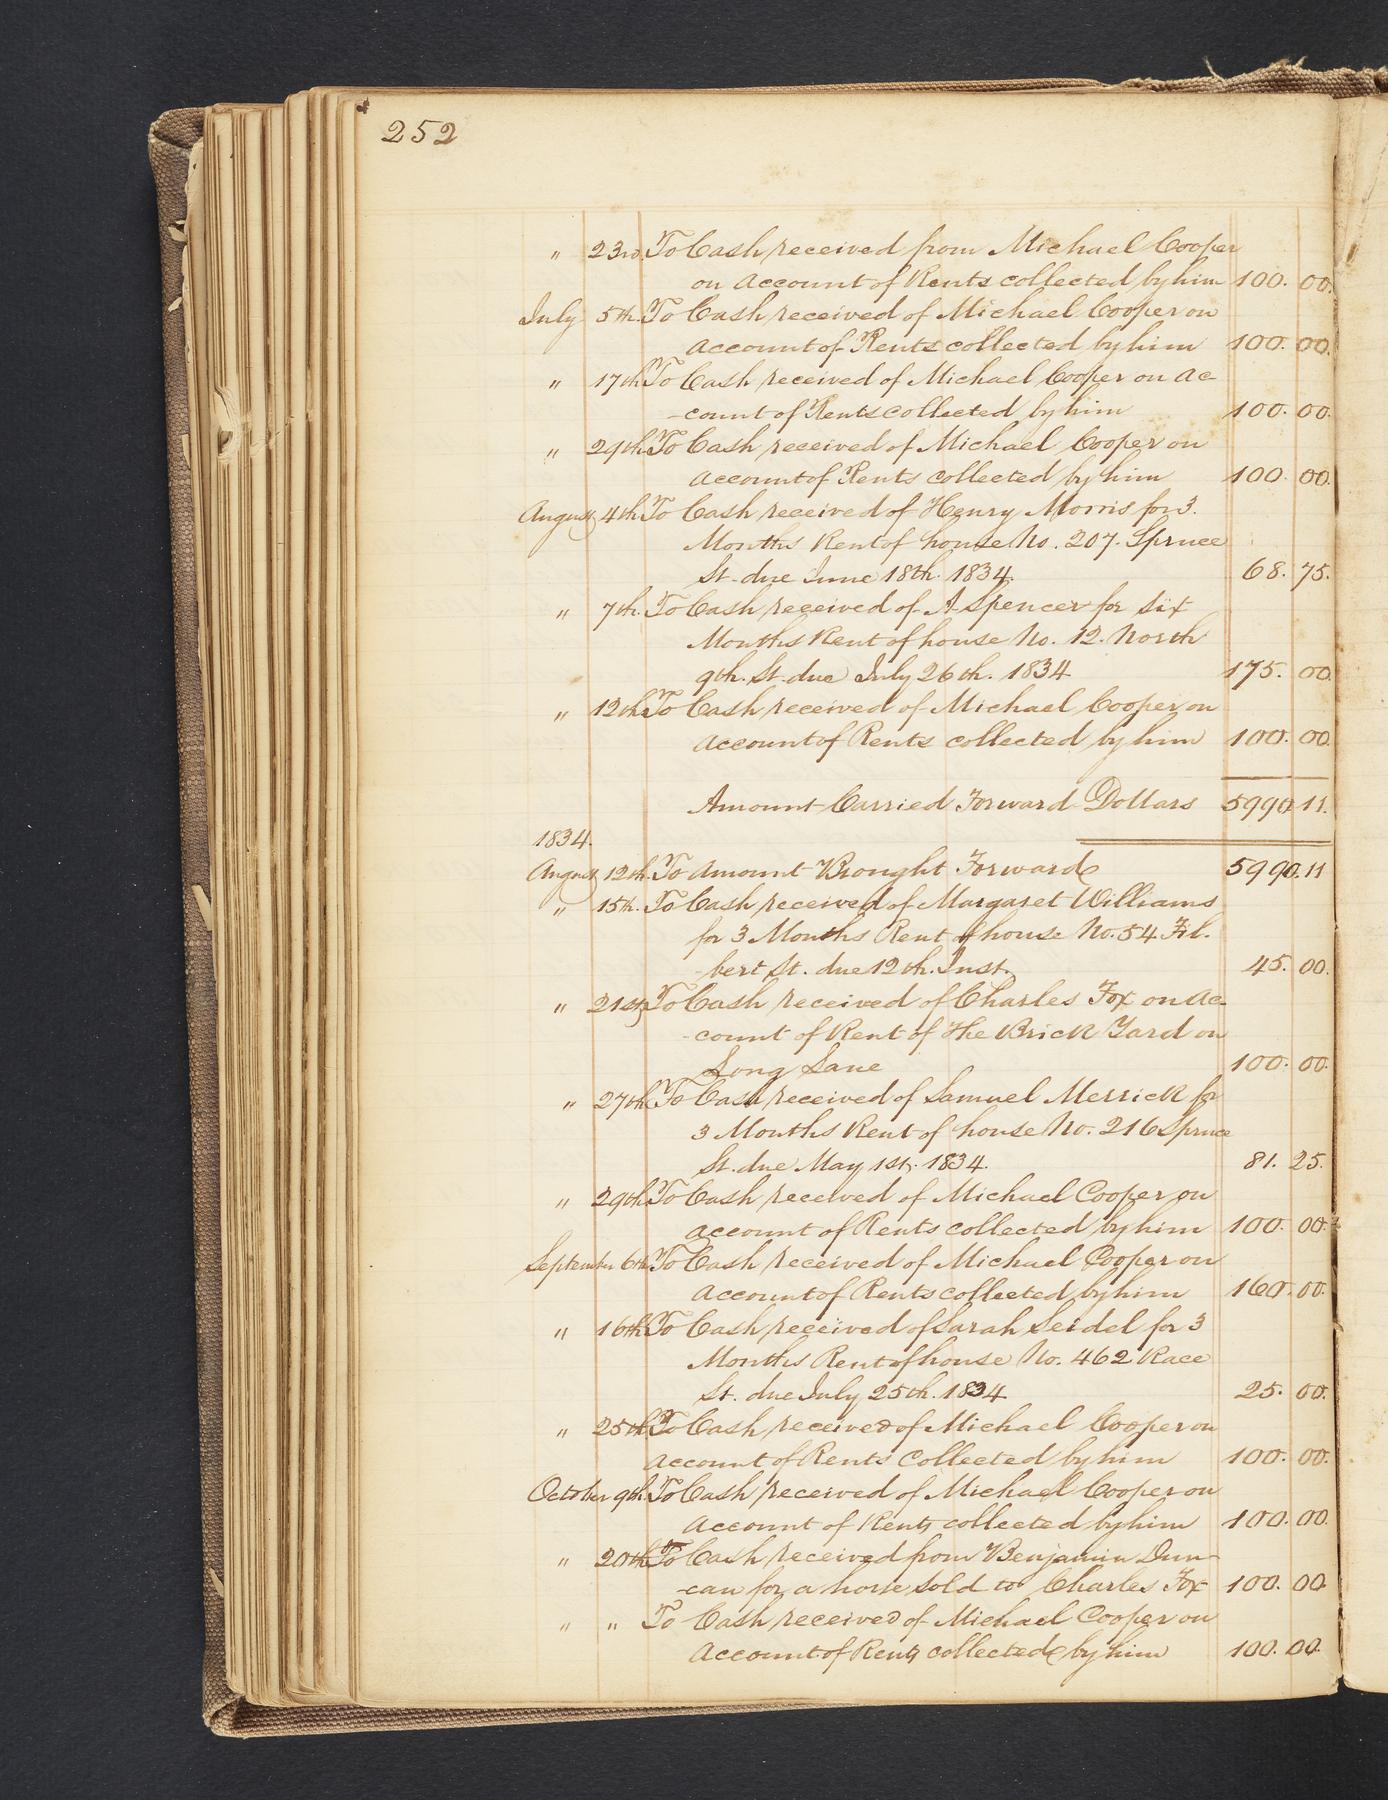 252
" 23rd. To Cash received from Michael Cooper
on account of Rents collected by him 100. 00.
July 5th. To Cash received of Michael Cooper on
account of Rents collected by him 100. 00.
" 17th To Cash received of Michael Cooper on Ac-
-count of Rents collected by him 100. 00.
" 29th. To Cash received of Michael Cooper on
account of Rents collected by him 100. 00.
August 4th. To Cash received of Henry Morris for 3.
Months Rent of house No. 207. Spruce
St. due June 18th. 1834. 68. 75.
" 7th. To Cash received of A Spencer for six
Months Rent of house No. 12. North
9th. St. due July 26th. 1834 175. 00.
" 12th. To Cash received of Michael Cooper on
account of Rents collected by him 100. 00.
Amount Carried Forward Dollars 5990. 11.
1834.
August 12th. To Amount Brought Forward 5990. 11
" 15th. To Cash received of Margaret Williams
for 3 Months Rent of house No. 54 Fil-
-bert St. due 12th. Inst. 45. 00.
" 21st, To Cash received of Charles Fox on Ac-
-count of Rent of the Brick Yard on
Long Lane 100. 00.
" 27th. To Cash received of Samuel Merrick for
3 Months Rent of house No. 216 Spruce
St. due May 1st. 1834. 81. 25.
" 29th. To Cash received of Michael Cooper on
account of Rents collected by him 100. 00.
September 6th. To Cash received of Michael Cooper on
account of Rents collected by him 160. 00.
" 16th To Cash received of Sarah Seidel for 3
Months Rent of house No. 462 Race
St. due July 25th. 1834 25. 00.
" 25th. To Cash received of Michael Cooper on
account of Rents Collected by him 100. 00.
October 9th. To Cash received of Michael Cooper on
account of Rents collected by him 100. 00.
" 20th. To Cash received from Benjamin Dun-
-can for a horse sold to Charles Fox 100. 00
" " To Cash received of Michael Cooper on
Account of Rents collected by him 100. 00.